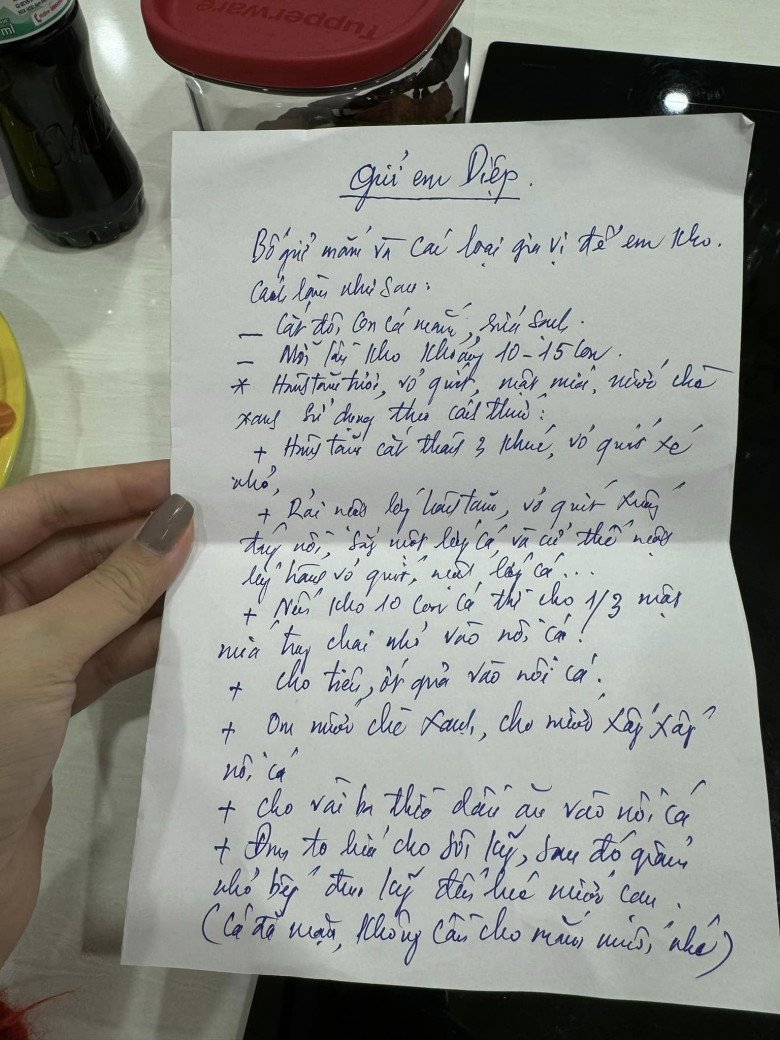 Tupperware
ml
Gửi em Diệp.
Bố gửi mắm và các loại gia vị để em kho.
Cách làm như sau:
– Cắt đôi con cá mắm, rửa sạch.
– Mỗi lần kho khoảng 10-15 con.
* Hành tăm tươi, vỏ quýt, mật mía, nước chè
xanh sử dụng theo cách thức:
+ Hành tăm cắt thành 3 khúc, vỏ quýt xé
nhỏ,
+ Rải một lớp hành tăm, vỏ quýt xuống
đáy nồi, sắp một lớp cá và cứ thế một
lớp hành vỏ quýt, một lớp cá...
+ Nếu kho 10 con cá thì cho 1/3 mật
mía trong chai nhỏ vào nồi cá.
+ Cho tiêu, ớt quả vào nồi cá.
+ Om nước chè xanh, cho nước xâm xấp
nồi cá
+ Cho vài ba thìa dầu ăn vào nồi cá
+ Đun to lửa cho sôi kỹ, sau đó giảm
nhỏ bếp đun kỹ đến lúc nước cạn.
(Cá đã mặn, không cần cho mắm muối nhé)